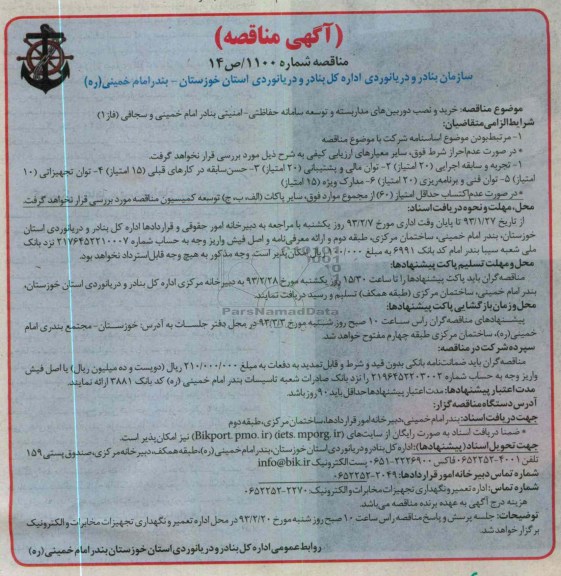 (آگهی مناقصه)
مناقصه شماره ۱۱۰۰/ص۱۴
سازمان بنادر و دریانوردی اداره کل بنادر و دریانوردی استان خوزستان - بندر امام خمینی (ره)
موضوع مناقصه: خرید و نصب دوربین‌های مداربسته و توسعه سامانه حفاظتی- امنیتی بنادر امام خمینی و سجافی (فاز ۱)
شرایط الزامی متقاضیان:
۱- مرتبط بودن موضوع اساسنامه شرکت با موضوع مناقصه
* در صورت عدم احراز شرط فوق، سایر معیارهای ارزیابی کیفی به شرح ذیل مورد بررسی قرار نخواهد گرفت.
۱- تجربه و سابقه اجرایی (۲۰ امتیاز) ۲- توان مالی و پشتیبانی (۲۰ امتیاز) ۳- حسن سابقه در کارهای قبلی (۱۵ امتیاز) ۴- توان تجهیزاتی (۱۰
امتیاز) ۵- توان فنی و برنامه‌ریزی (۲۰ امتیاز) ۶- مدارک ویژه (۱۵ امتیاز)
* در صورت عدم اکتساب حداقل امتیاز (۶۰) از مجموع موارد فوق، سایر پاکات (الف، ب، ج) توسط کمیسیون مناقصه مورد بررسی قرار نخواهد گرفت.
محل، مهلت و نحوه دریافت اسناد:
از تاریخ ۹۳/۱/۲۷ تا پایان وقت اداری مورخ ۹۳/۲/۷ روز یکشنبه با مراجعه به دبیرخانه امور حقوقی و قراردادها اداره کل بنادر و دریانوردی استان
خوزستان، بندر امام خمینی، ساختمان مرکزی، طبقه دوم و ارائه معرفی‌نامه و اصل فیش واریز وجه به حساب شماره ۲۱۷۶۴۵۲۲۱۰۰۰۷ نزد بانک
ملی شعبه سیبا بندر امام کد بانک ۶۹۹۱ به مبلغ ریال امکان‌پذیر است. وجه مذکور به هیچ وجه قابل استرداد نخواهد بود.
محل و مهلت تسلیم پاکت پیشنهادها:
مناقصه‌گران باید پاکت پیشنهادها را تا ساعت ۱۵/۳۰ روز یکشنبه مورخ ۹۳/۲/۲۸ به دبیرخانه مرکزی اداره کل بنادر و دریانوردی استان خوزستان،
بندر امام خمینی، ساختمان مرکزی (طبقه همکف) تسلیم و رسید دریافت نمایند.
محل و زمان بازگشایی پاکت پیشنهادها:
پیشنهادهای مناقصه‌گران رأس ساعت ۱۰ صبح روز شنبه مورخ در محل دفتر جلسات به آدرس: خوزستان- مجتمع بندری امام
خمینی (ره)، ساختمان مرکزی طبقه چهارم مفتوح خواهد شد.
سپرده شرکت در مناقصه:
مناقصه‌گران باید ضمانت‌نامه بانکی بدون قید و شرط و قابل تمدید به دفعات به مبلغ ۲۱۰/۰۰۰/۰۰۰ ریال (دویست و ده میلیون ریال) یا اصل فیش
واریز وجه به حساب شماره ۲۱۹۶۴۵۲۲۰۳۰۰۲ را نزد بانک صادرات شعبه تاسیسات بندر امام خمینی (ره) کد بانک ۳۸۸۱ ارائه نمایند.
مدت اعتبار پیشنهادها: مدت اعتبار پیشنهادها حداقل باید ۹۰ روز باشد.
آدرس دستگاه مناقصه گزار:
جهت دریافت اسناد: بندر امام خمینی، دبیرخانه امور قراردادها، ساختمان مرکزی، طبقه دوم
* ضمنا دریافت اسناد به صورت رایگان از سایت‌های (iets. mporg. ir) (Bikport. pmo. ir) نیز امکان‌پذیر است.
جهت تحویل اسناد (پیشنهادها): اداره کل بنادر و دریانوردی استان خوزستان، بندر امام خمینی (ره)، طبقه همکف، دبیرخانه مرکزی، صندوق پستی ۱۵۹
تلفن ۴۰۰۱-۰۶۵۲۲۵۲ فاکس ۲۲۲۶۹۰۰-۰۶۵۱ پست الکترونیک info@bik.ir
شماره تماس دبیرخانه امور قراردادها: ۲۰۴۹-۰۶۵۲۲۵۲
شماره تماس: اداره تعمیر و نگهداری تجهیزات مخابرات و الکترونیک: ۲۲۷۰-۰۶۵۲۲۵۲
هزینه درج آگهی به عهده برنده مناقصه می‌باشد.
توضیحات: جلسه پرسش و پاسخ مناقصه راس ساعت ۱۰ صبح روز شنبه مورخ ۹۳/۲/۲۰ در محل اداره تعمیر و نگهداری تجهیزات مخابرات و الکترونیک
برگزار خواهد شد.
روابط عمومی اداره کل بنادر و دریانوردی استان خوزستان بندر امام خمینی (ره)
ParsNamadData